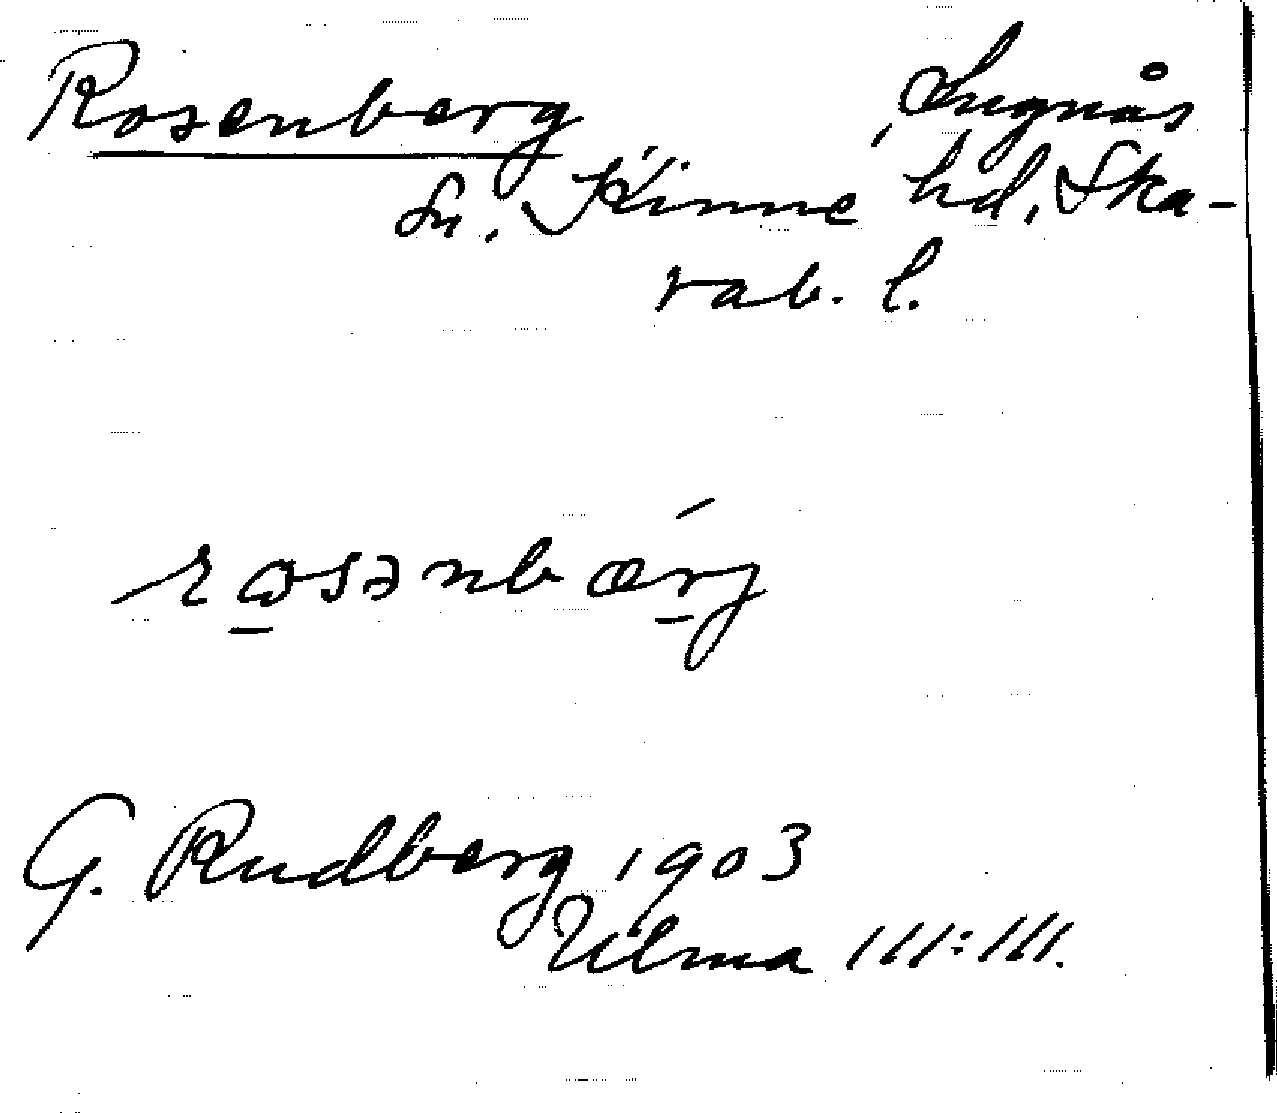 Rosenberg Lugnås
sn, Kinne hd, Ska-
rab. l.
rosənbærj
G. Rudberg 1903
Ulma 111:111.